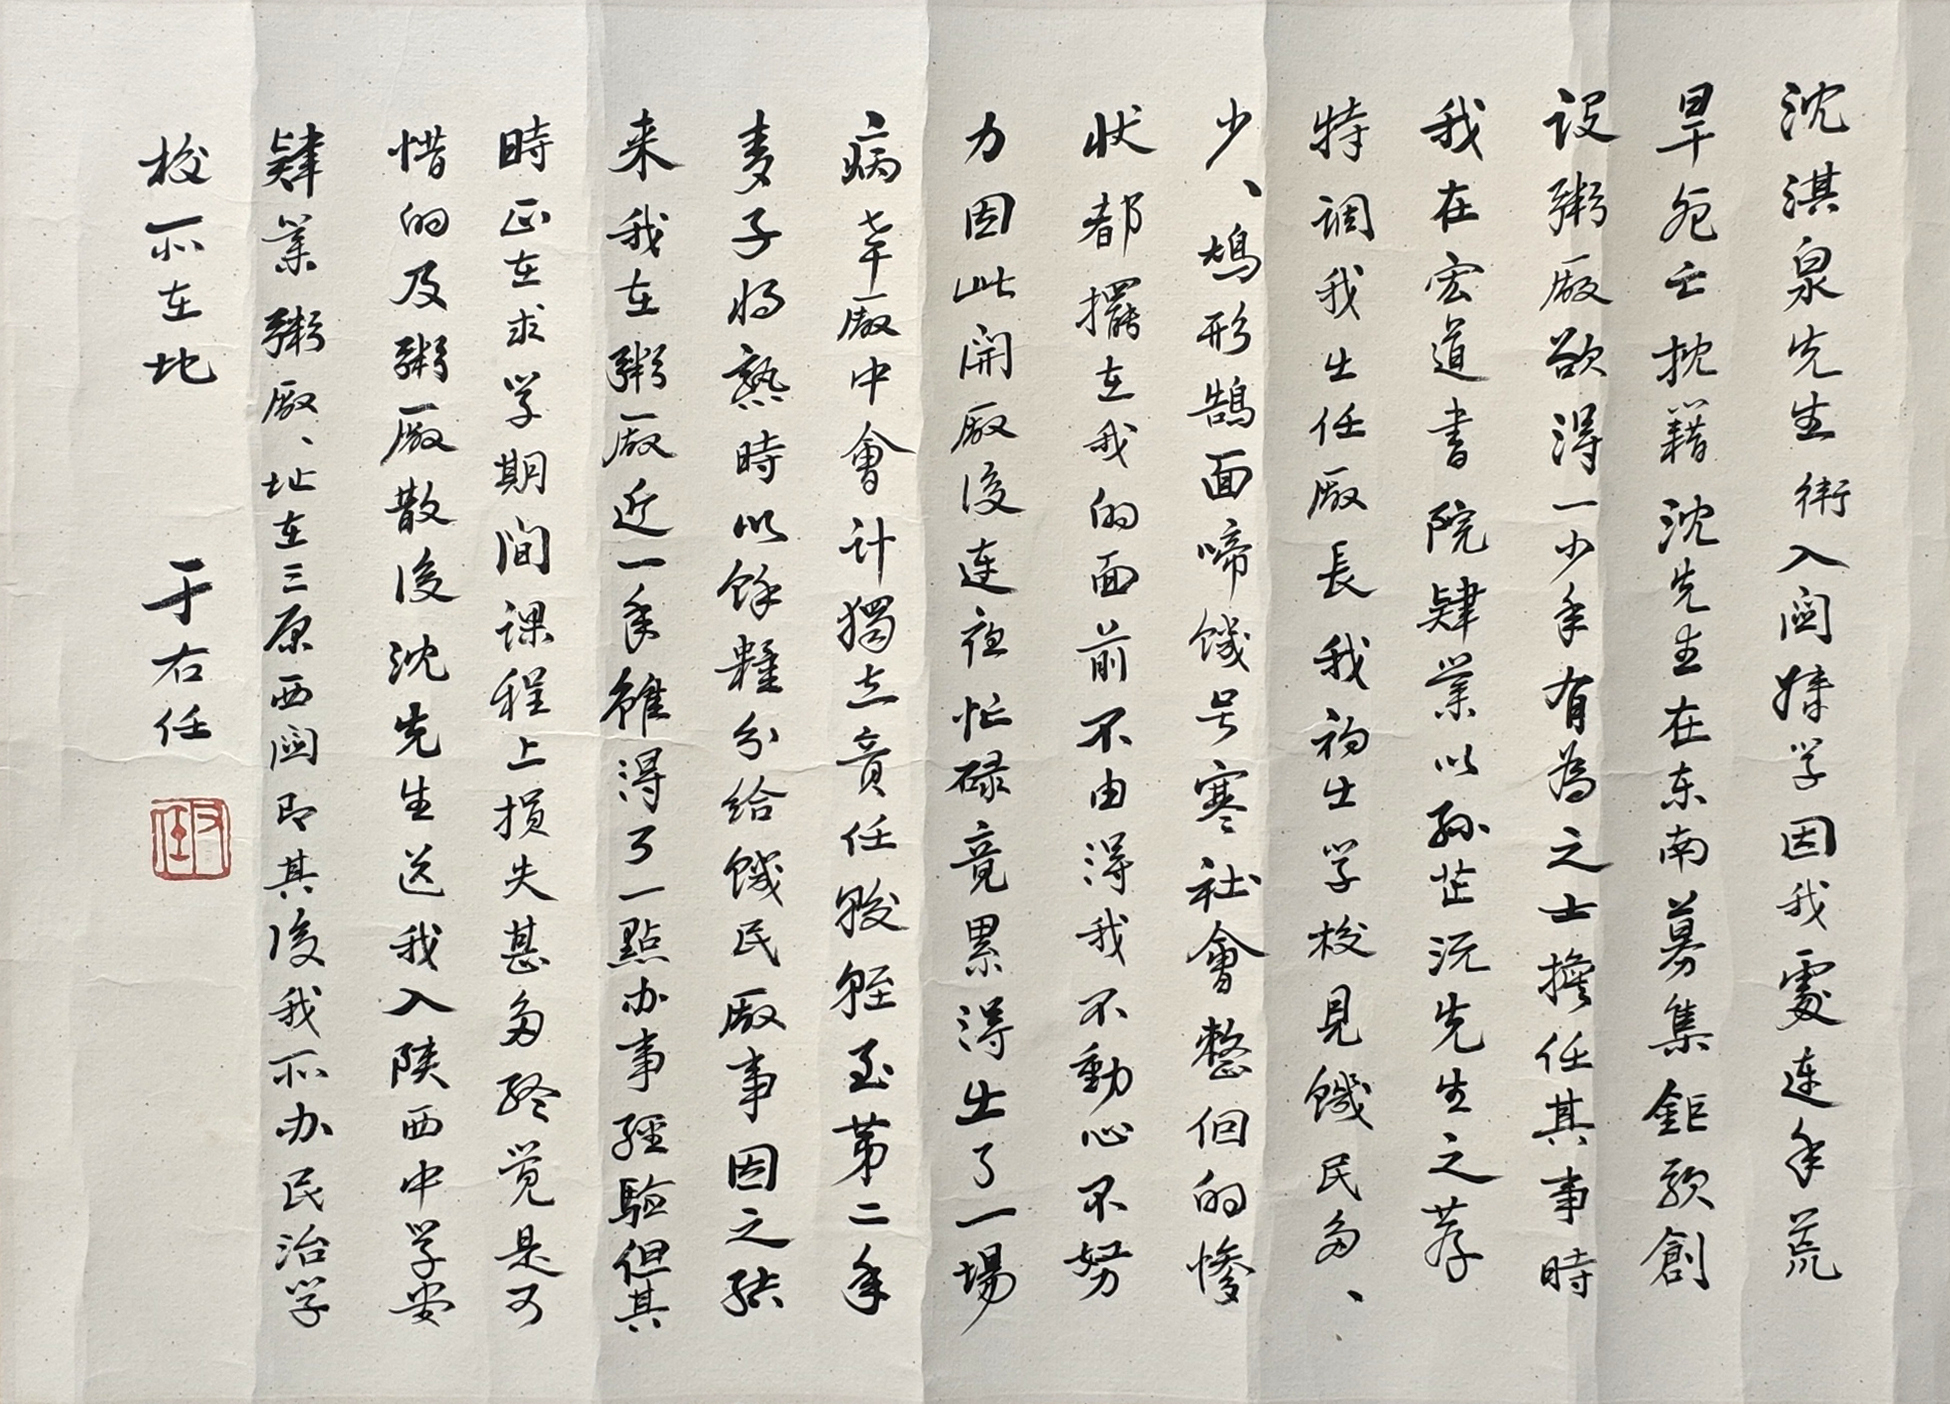 沈淇泉先生衛入関督学因我處連年荒
旱死亡枕籍沈先生在东南募集鉅款創
设粥廠欲得一少年有為之士擔任其事時
我在宏道書院肄業以孙芷沅先生之荐
特调我出任廠長我初出学校見饑民多、
少、鳩形鵠面啼饑号寒社會整個的惨
状都擺在我的面前不由得我不動心不努
力因此開廠後連夜忙碌竟累得出了一場
病幸廠中會计獨立責任較軽至第二年
麦子将熟時以餘糧分给饑民廠事因之结
来我在粥廠近一年雖得了一點办事經驗但其
時正在求学期间课程上损失甚多终觉是可
惜的及粥廠散後沈先生送我入陕西中学堂
肄業粥廠、址在三原西関即其後我所办民治学
校所在地 于右任
右任